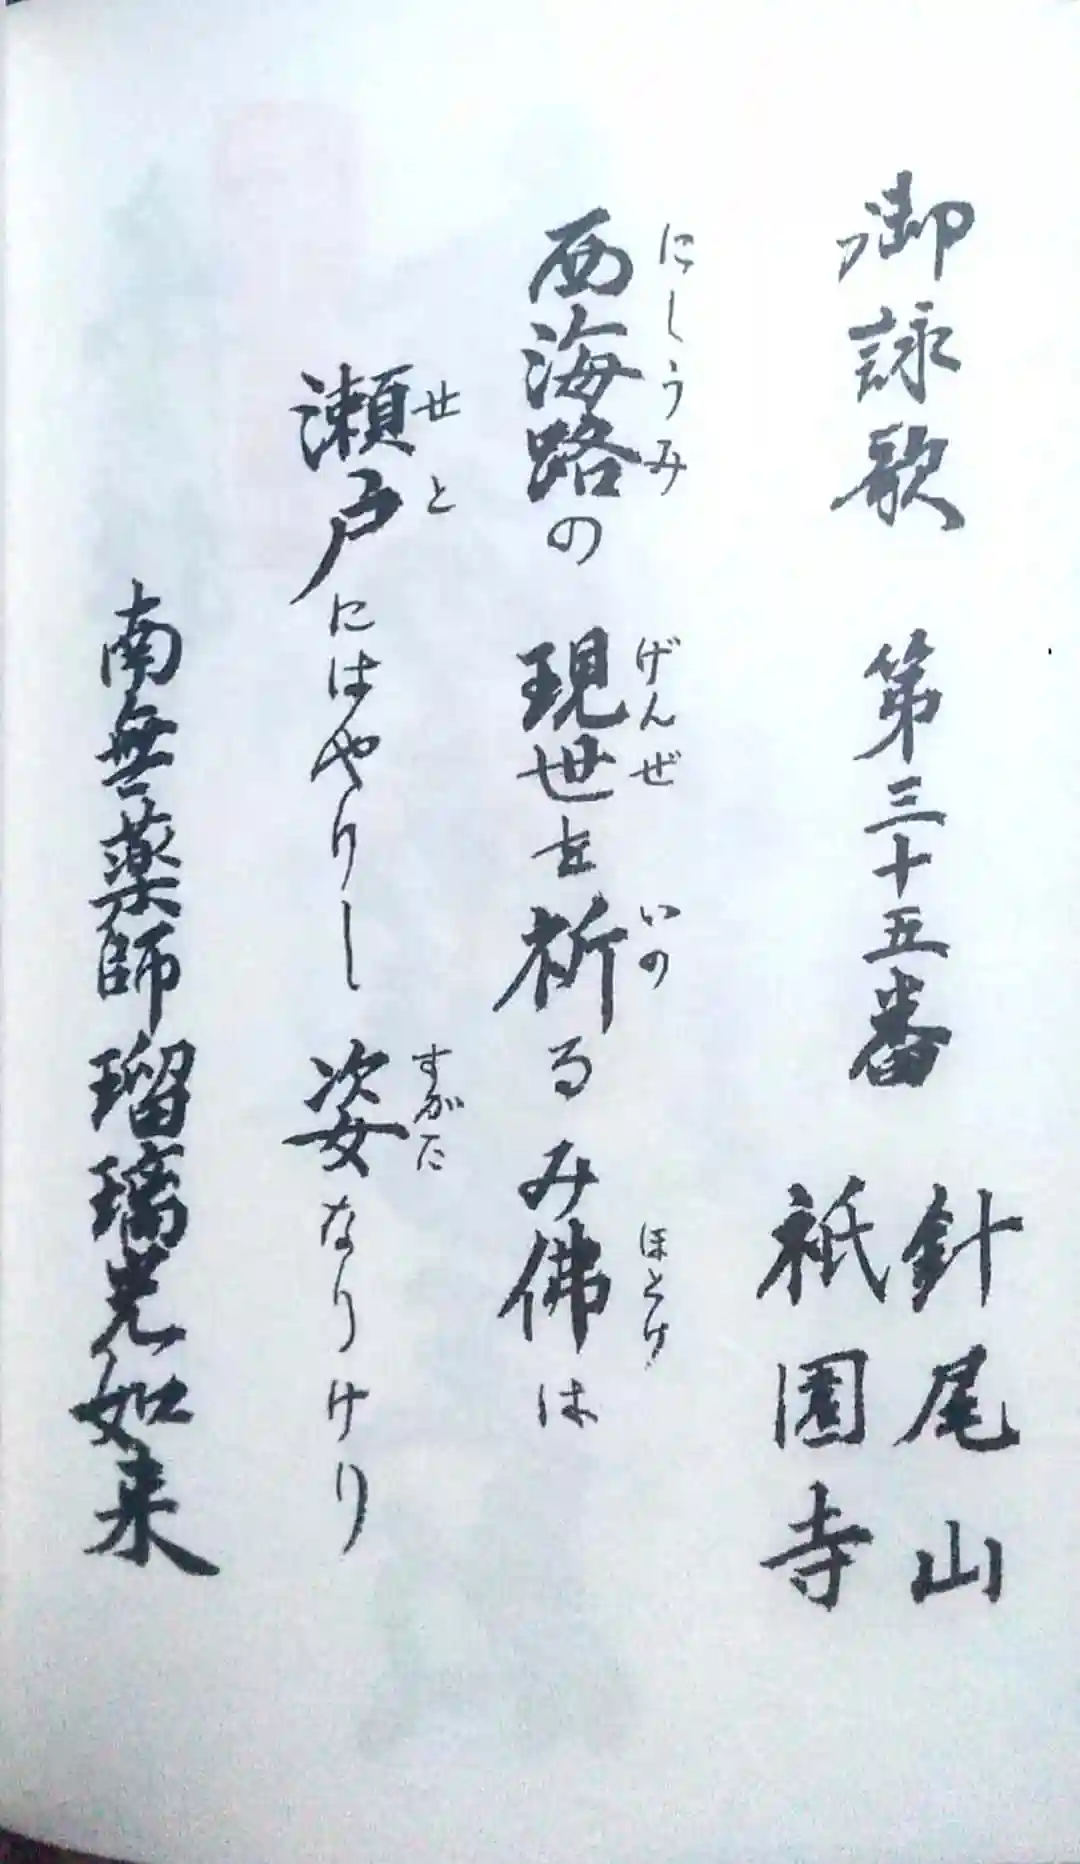 御詠歌 第三十五番 針尾山
祇園寺
にしうみ げんぜ いの ほとけ
西海路の 現世を祈る み佛は
せと すがた
瀬戸にはやりし 姿なりけり
南無薬師 瑠璃光如来